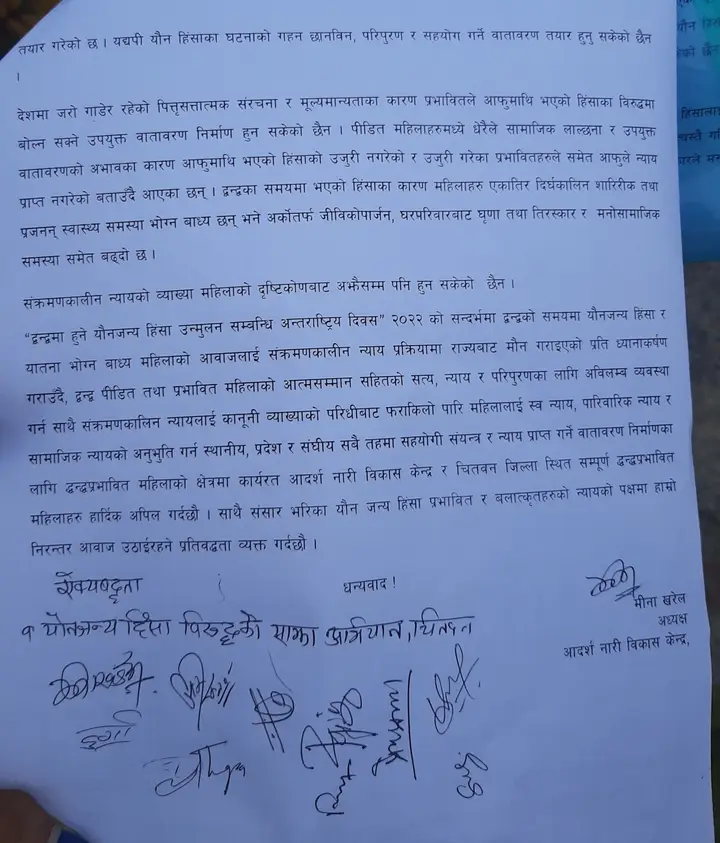 तयार गरेको छ । यद्यपी यौन हिंसाका घटनाको गहन छानविन, परिपुरण र सहयोग गर्ने वातावरण तयार हुनु सकेको छैन
।
देशमा जरो गाडेर रहेको पित्तृसत्तात्मक संरचना र मूल्यमान्यताका कारण प्रभावितले आफुमाथि भएको हिंसाका विरुद्धमा
बोल्न सक्ने उपयुक्त वातावरण निर्माण हुन सकेको छैन । पीडित महिलाहरुमध्ये धेरैले सामाजिक लाल्छना र उपयुक्त
वातावरणको अभावका कारण आफुमाथि भएको हिंसाको उजुरी नगरेको र उजुरी गरेका प्रभावितहरुले समेत आफुले न्याय
प्राप्त नगरेको बताउँदै आएका छन् । द्वन्द्वका समयमा भएको हिंसाका कारण महिलाहरु एकातिर दिर्घकालिन शारिरीक तथा
प्रजनन् स्वास्थ्य समस्या भोग्न बाध्य छन् भने अर्कोतर्फ जीविकोपार्जन, घरपरिवारबाट घृणा तथा तिरस्कार र मनोसामाजिक
समस्या समेत बढ्दो छ ।
संक्रमणकालीन न्यायको व्याख्या महिलाको दृष्टिकोणबाट अझैसम्म पनि हुन सकेको छैन ।
“द्वन्द्वमा हुने यौनजन्य हिंसा उन्मुलन सम्बन्धि अन्तराष्ट्रिय दिवस” २०२२ को सन्दर्भमा द्वन्द्वको समयमा यौनजन्य हिंसा र
यातना भोग्न बाध्य महिलाको आवाजलाई संक्रमणकालीन न्याय प्रक्रियामा राज्यबाट मौन गराइएको प्रति ध्यानाकर्षण
गराउँदै, द्वन्द्व पीडित तथा प्रभावित महिलाको आत्मसम्मान सहितको सत्य, न्याय र परिपुरणका लागि अविलम्ब व्यवस्था
गर्न साथै संक्रमणकालिन न्यायलाई कानूनी व्याख्याको परिधीबाट फराकिलो पारि महिलालाई स्व न्याय, पारिवारिक न्याय र
सामाजिक न्यायको अनुभुति गर्न स्थानीय, प्रदेश र संघीय सबै तहमा सहयोगी संयन्त्र र न्याय प्राप्त गर्ने वातावरण निर्माणका
लागि द्वन्द्वप्रभावित महिलाको क्षेत्रमा कार्यरत आदर्श नारी विकास केन्द्र र चितवन जिल्ला स्थित सम्पूर्ण द्वन्द्वप्रभावित
महिलाहरु हार्दिक अपिल गर्दछौ । साथै संसार भरिका यौन जन्य हिंसा प्रभावित र बलात्कृतहरुको न्यायको पक्षमा हाम्रो
निरन्तर आवाज उठाईरहने प्रतिवद्धता व्यक्त गर्दछौ ।
ऐक्यबद्धता
धन्यवाद !
मीना खरेल
अध्यक्ष
आदर्श नारी विकास केन्द्र,
१ यौनजन्य हिंसा विरुद्धको साझा अभियान, चितवन